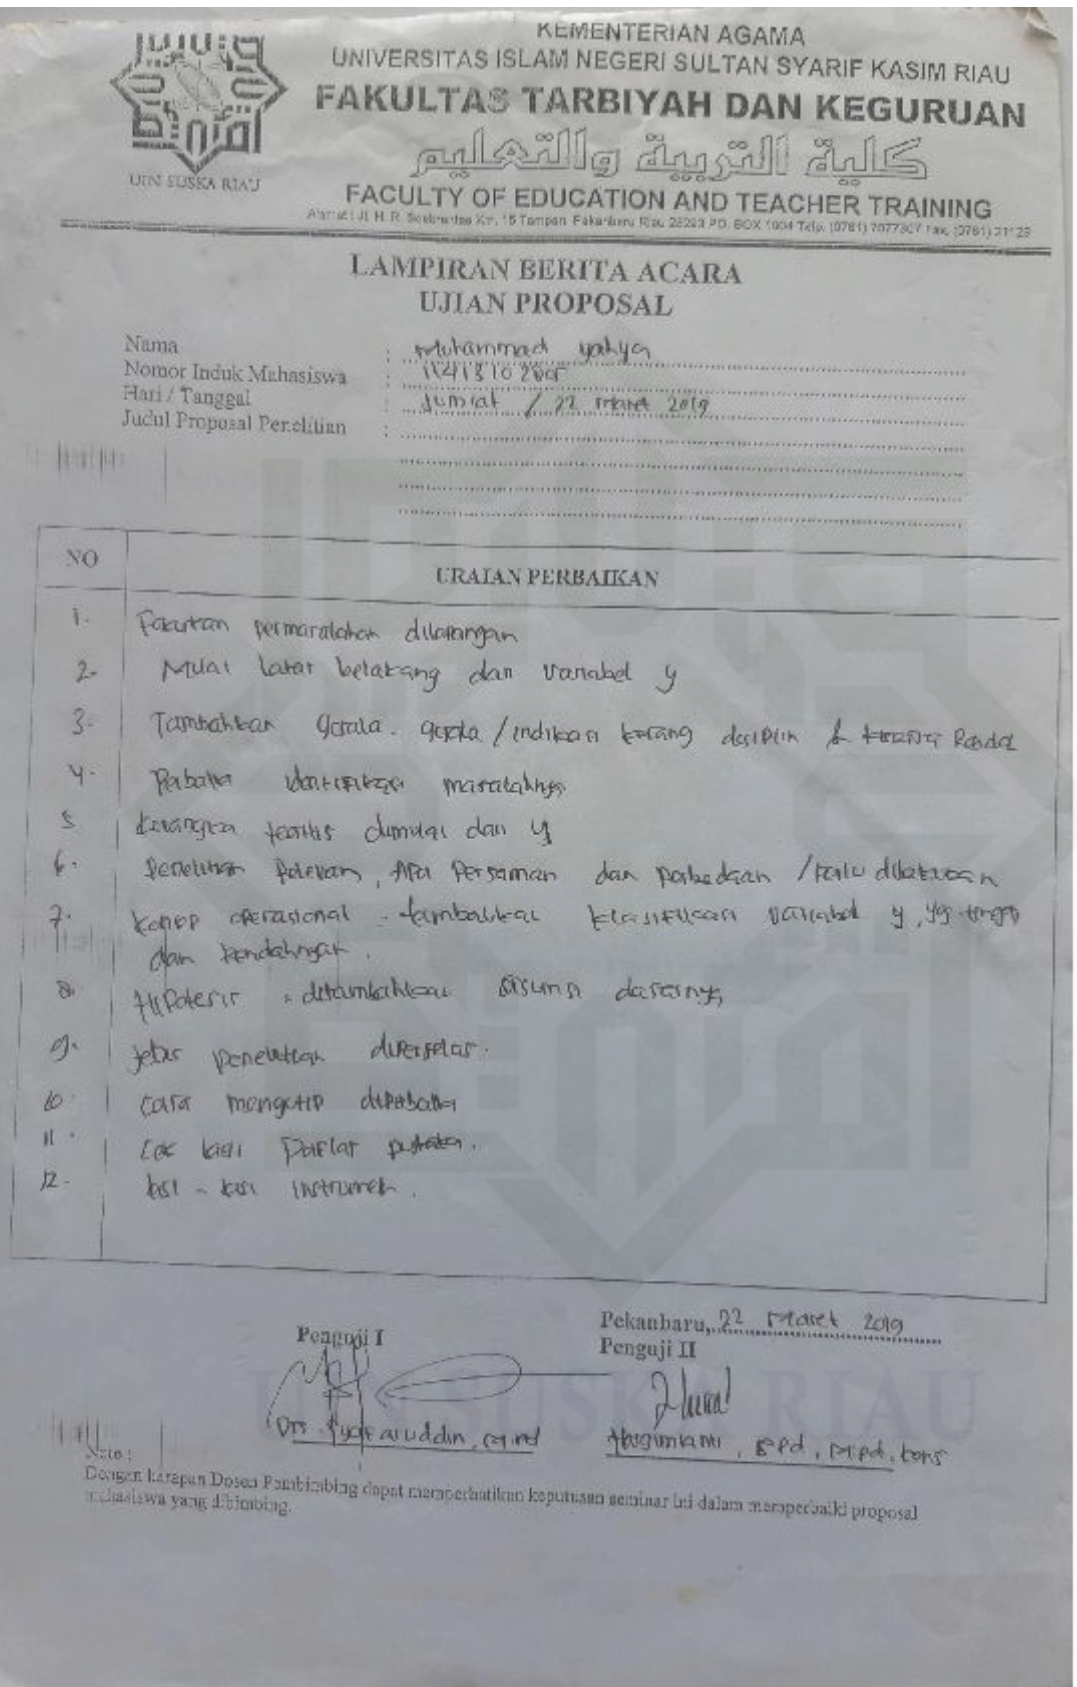 KEMENTERIAN AGAMA
UNIVERSITAS ISLAM NEGERI SULTAN SYARIF KASIM RIAU
FAKULTAS TARBIYAH DAN KEGURUAN
كلية التربية والتعليم
FACULTY OF EDUCATION AND TEACHER TRAINING
Alamat : Jl. H. R. Soebrantas Km. 15 Tampan Pekanbaru Riau 28293 PO. BOX 1004 Telp. (0761) 7077307 Fax. (0761) 21129
UIN SUSKA RIAU
LAMPIRAN BERITA ACARA
UJIAN PROPOSAL
Nama : Muhammad yahya
Nomor Induk Mahasiswa :
Hari / Tanggal : Jum'at / 22 Maret 2019
Judul Proposal Penelitian :
NO URAIAN PERBAIKAN
1. permasalahan dilapangan
2. Mulai latar belakang dari variabel y
3. Tambahkan gejala-gejala / indikasi kurang disiplin
4. Perbaiki identifikasi masalahnya
5 kerangka teoritis dimulai dari y
6. Penelitian Relevan, Apa Persamaan dan perbedaan / Perlu dilakukan
7. konsep operasional - tambahkan klasifikasi variabel y, yg tinggi
dan rendahnya.
8. Hipotesis ditambahkan asumsi dasarnya
9. jenis penelitian diperjelas.
10. cara mengutip diperbaiki
11. Cek lagi Daftar pustaka.
12. kisi - kisi instrumen.
Pekanbaru, 22 Maret 2019
Penguji I Penguji II
Drs. Syafaruddin, M.Pd
, S.Pd, M.Pd, Kons
UIN SUSKA RIAU
Note :
Dengan harapan Dosen Pembimbing dapat memperhatikan keputusan seminar ini dalam memperbaiki proposal
mahasiswa yang dibimbing.